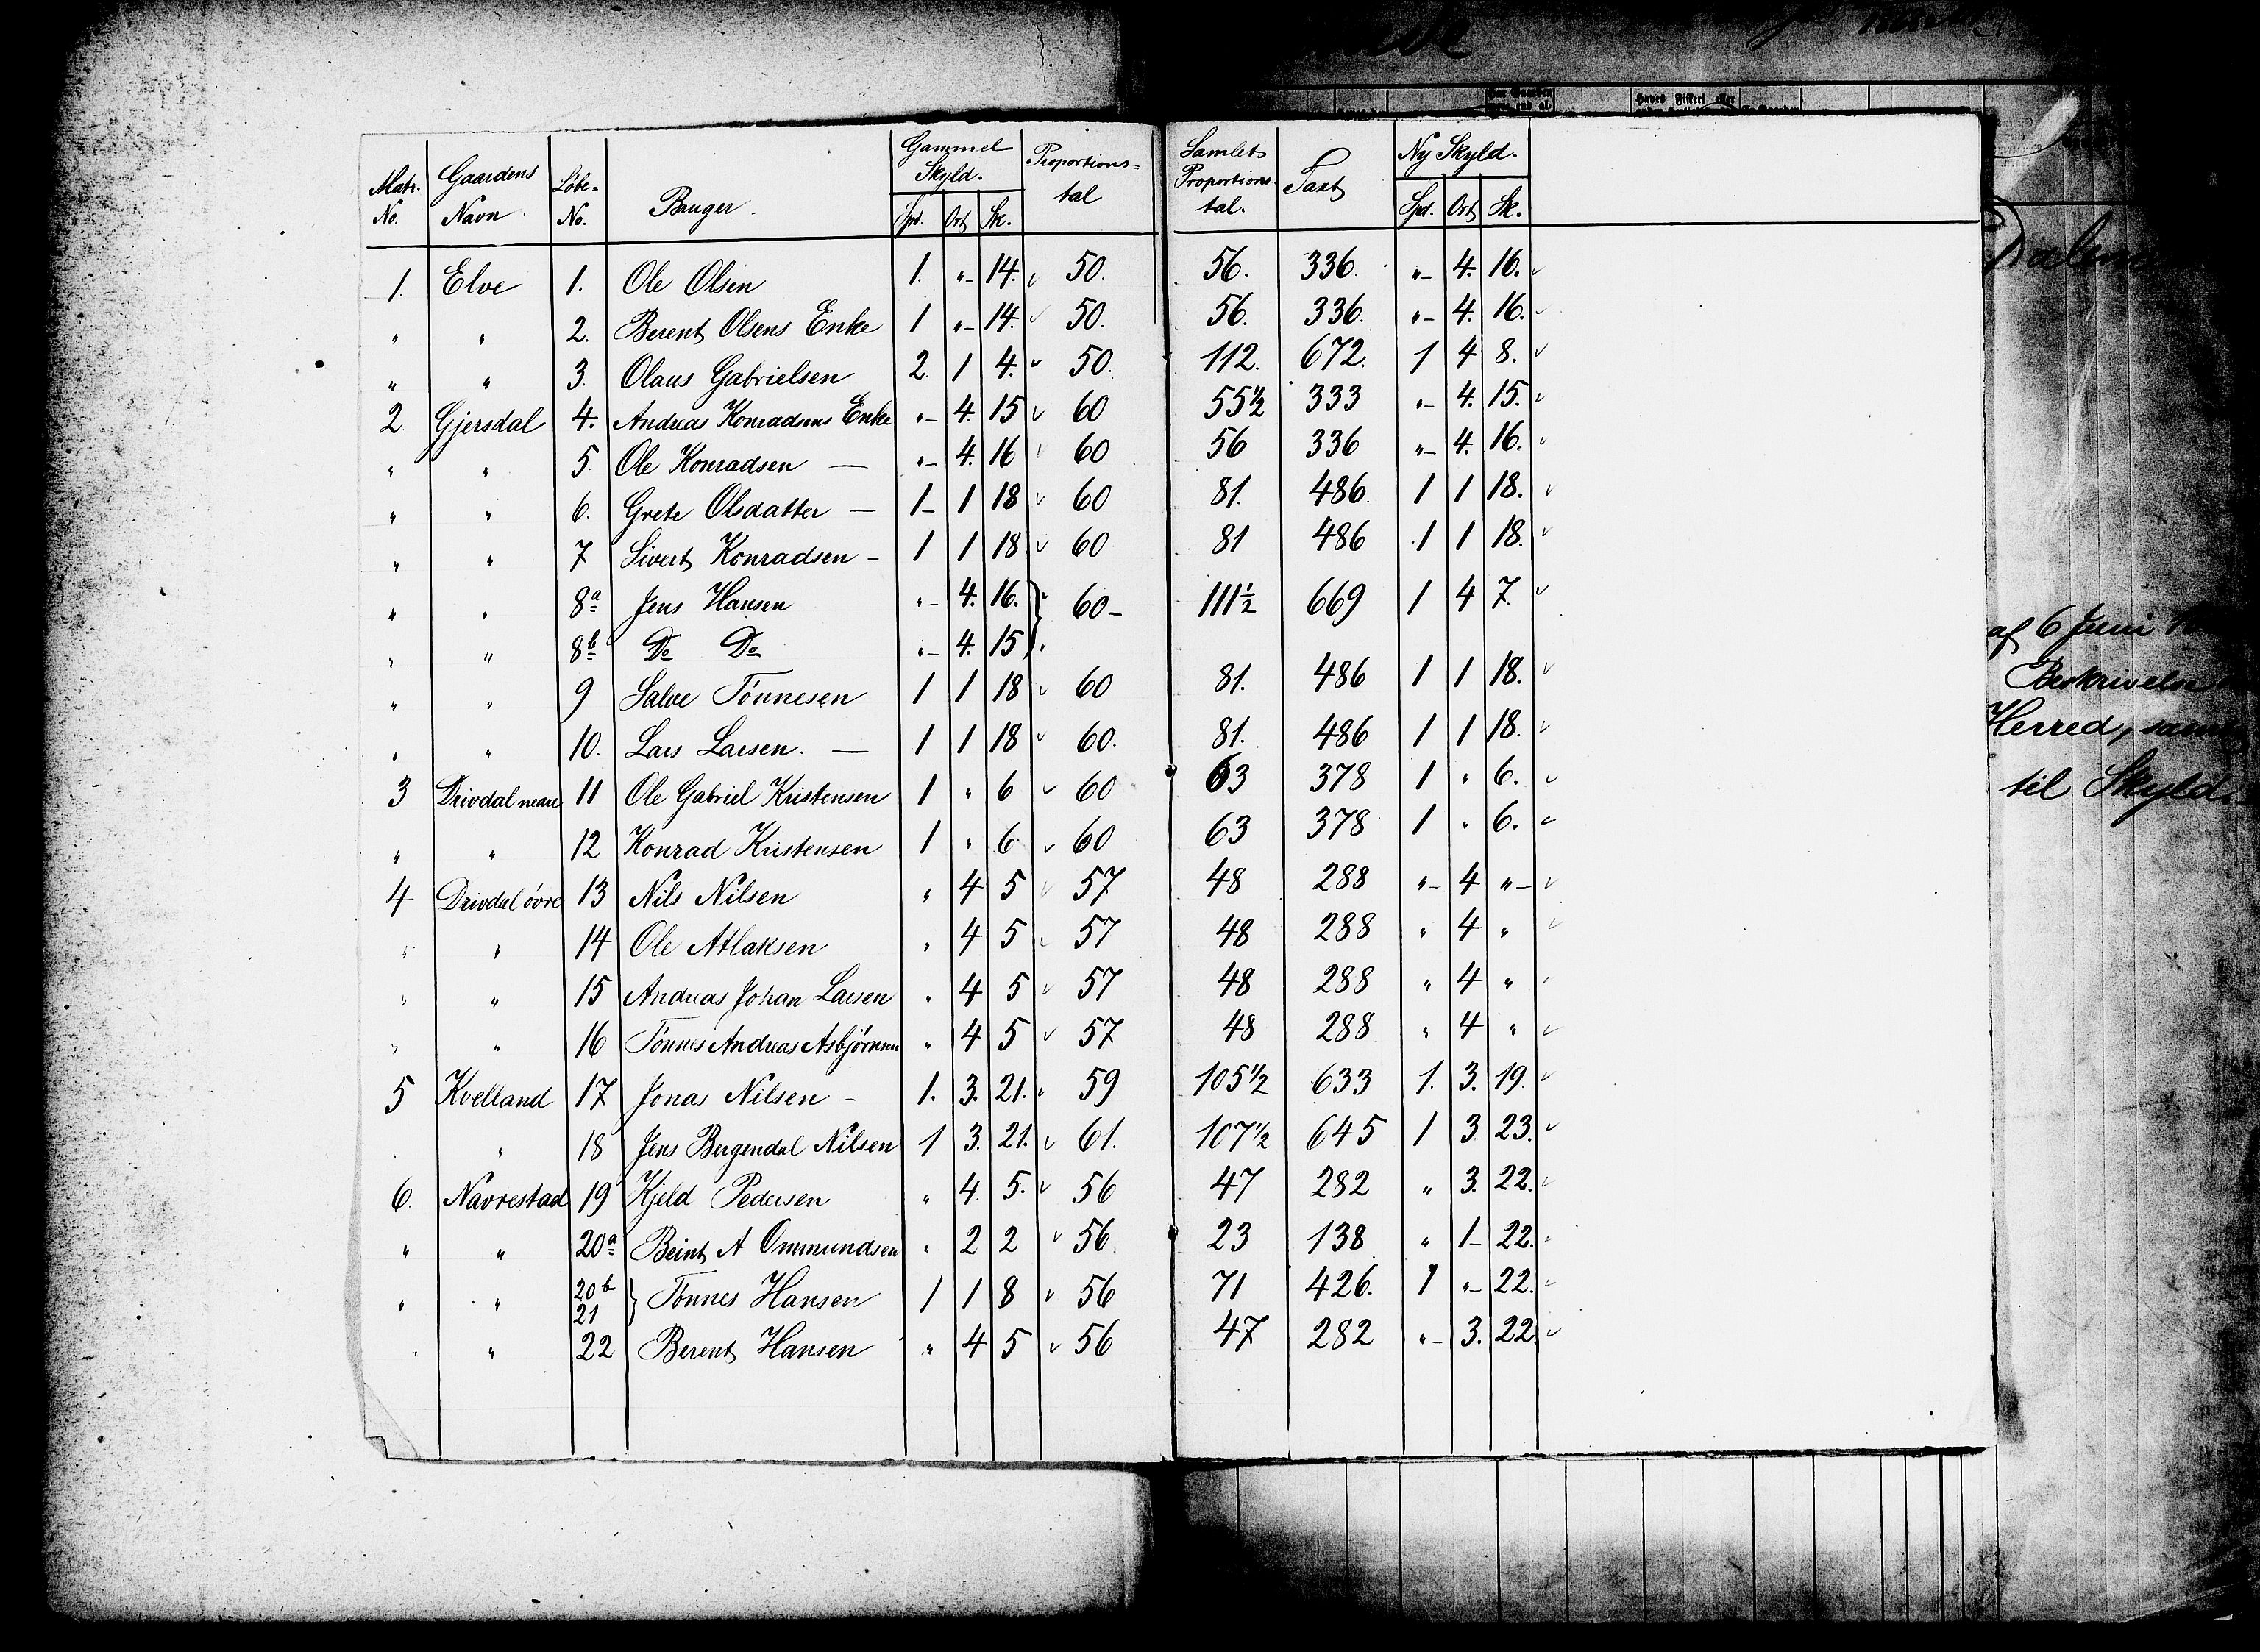 Matr. No. | Gaardens Navn. | Løbe-No. | Bruger. | Gammel Skyld. Spd. Ort Sk. | Proportions-tal | Samlet Proportions-tal. | Taxt | Ny Skyld. Spd. Ort Sk.
1. Elve 1. Ole Olsen 1. "- 14. 50. 56. 336. "- 4. 16.
" " 2. Berent Olsens Enke 1 "- 14. 50. 56. 336. "- 4. 16.
" " 3. Olaus Gabrielsen 2. 1 4. 50. 112. 672. 1 4 8.
2. Gjersdal 4. Andreas Konradsens Enke "- 4. 15 60 55½ 333 "- 4. 15.
" " 5. Ole Konradsen — "- 4. 16 60 56 336 "- 4. 16.
" " 6. Grete Olsdatter — 1- 1 18 60 81. 486. 1 1 18.
" " 7 Sivert Konradsen - 1 1 18 60 81 486 1 1 18.
" " 8a Jens Hansen "- 4. 16. } 60- 111½ 669 1 4 7.
" " 8b Do Do "- 4. 15 }
" " 9 Salve Tönnesen 1 1 18 60 81. 486 1 1 18.
" " 10. Lars Larsen. — 1 1 18 60. 81. 486 1 1 18.
3 Drivdal nedre 11 Ole Gabriel Kristensen 1 " 6 60 63 378 1 " 6.
" " 12 Konrad Kristensen 1 " 6 60 63 378 1 " 6.
4 Drivdal övre 13 Nils Nilsen " 4 5 57 48 288 "- 4 "-
" " 14 Ole Atlaksen " 4 5 57 48 288 " 4 "
" " 15 Andreas Johan Larsen " 4 5 57 48 288 " 4 "
" " 16 Tönnes Andreas Asbjörnsen " 4 5 57 48 288 " 4 "
5 Kvelland 17 Jonas Nilsen - 1. 3. 21. 59 105½ 633 1. 3. 19.
" " 18 Jens Bergendal Nilsen 1 3. 21. 61. 107½ 645 1 3. 23.
6. Navrestad 19 Kjeld Pedersen " 4. 5. 56 47 282 " 3. 22.
" " 20a Beint A Ommundsen " 2 2 56. 23 138 " 1- 22.
" " 20b 21 } Tönnes Hansen 1 1 8 56 71 426. 1 "- 22.
" " 22 Berent Hansen " 4 5 56 47 282 "- 3. 22.
af 6 Juni
Beskrivelse
Herred, samt
til Skyld.